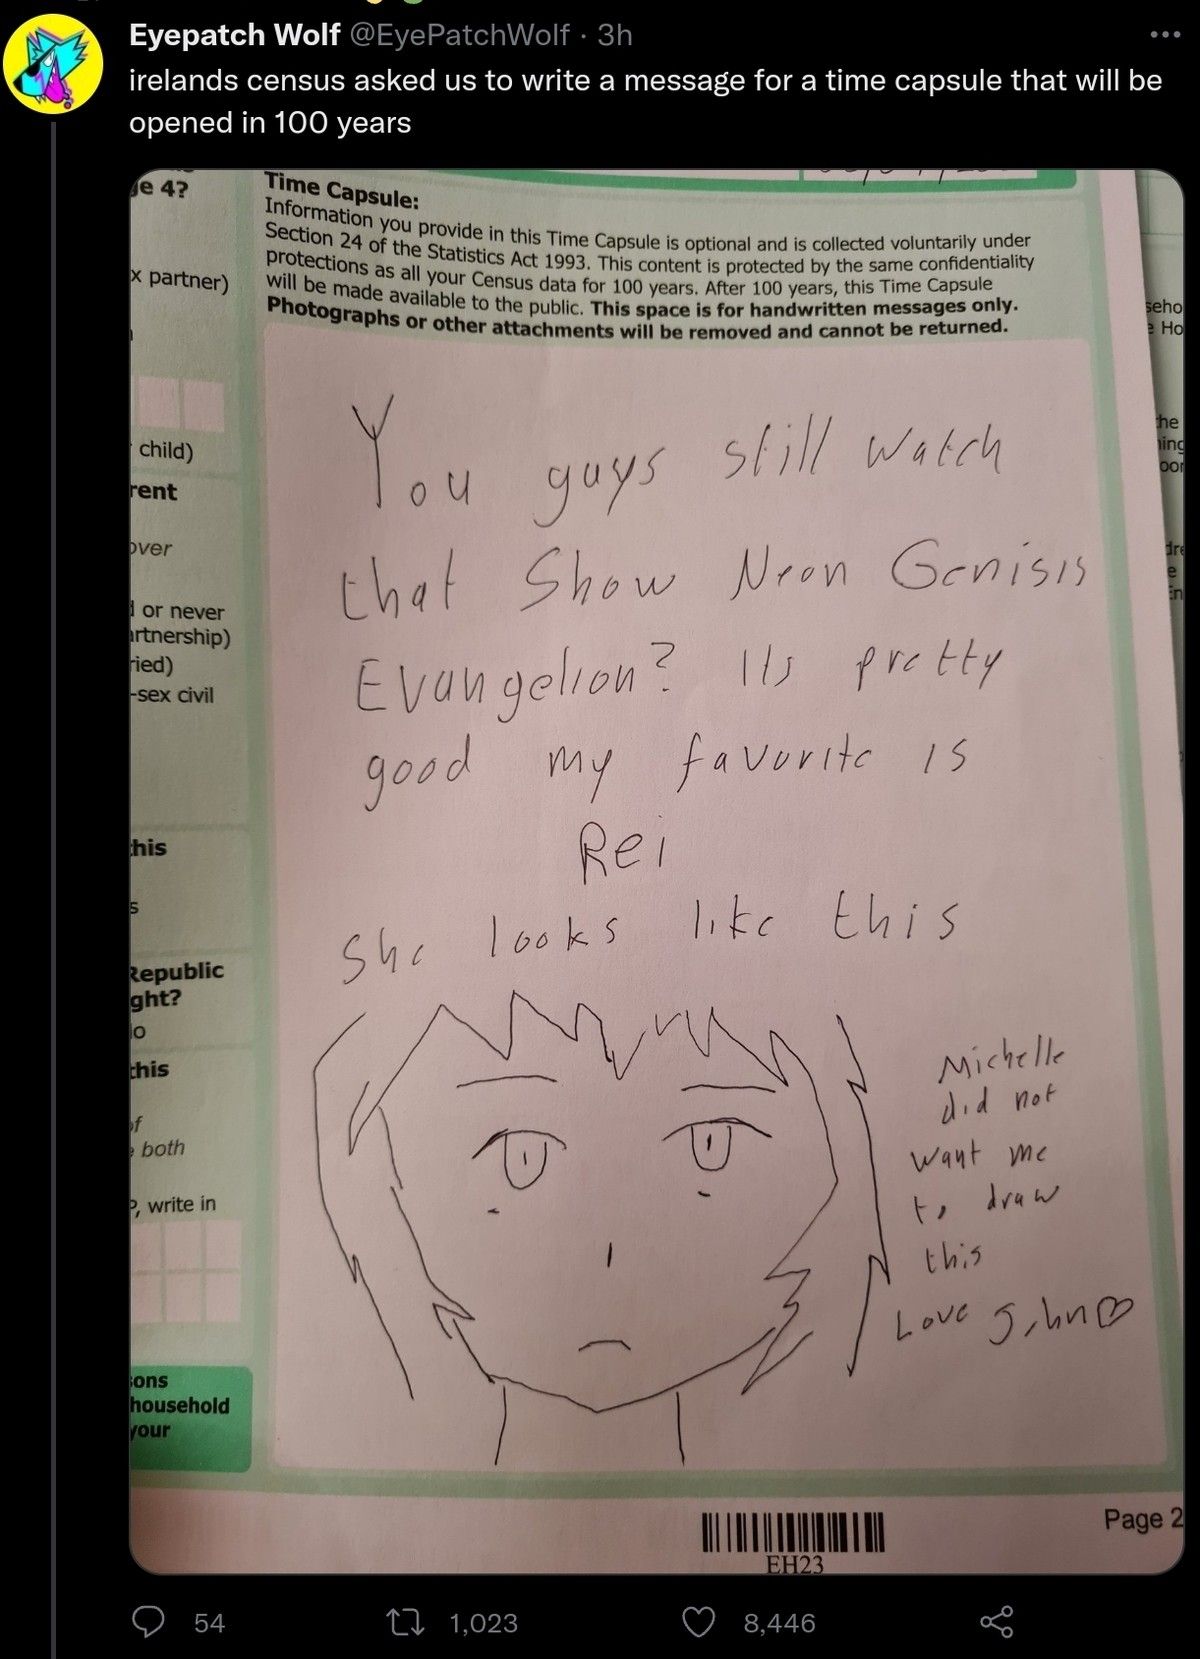 Eyepatch Wolf @EyePatchWolf · 3h
irelands census asked us to write a message for a time capsule that will be
opened in 100 years
Time Capsule:
Information you provide in this Time Capsule is optional and is collected voluntarily under
Section 24 of the Statistics Act 1993. This content is protected by the same confidentiality
protections as all your Census data for 100 years. After 100 years, this Time Capsule
will be made available to the public. This space is for handwritten messages only.
Photographs or other attachments will be removed and cannot be returned.
e 4?
x partner)
child)
rent
over
d or never
artnership)
ried)
-sex civil
this
s
Republic
ght?
o
this
of
both
P, write in
ons
household
your
You guys still watch
that Show Neon Genisis
Evangelion? Its pretty
good my favorite is
Rei
She looks like this
Michelle
did not
want me
to draw
this
Love John
seho
e Ho
he
ing
oor
dre
e
En
EH23
Page 2
54
1,023
8,446